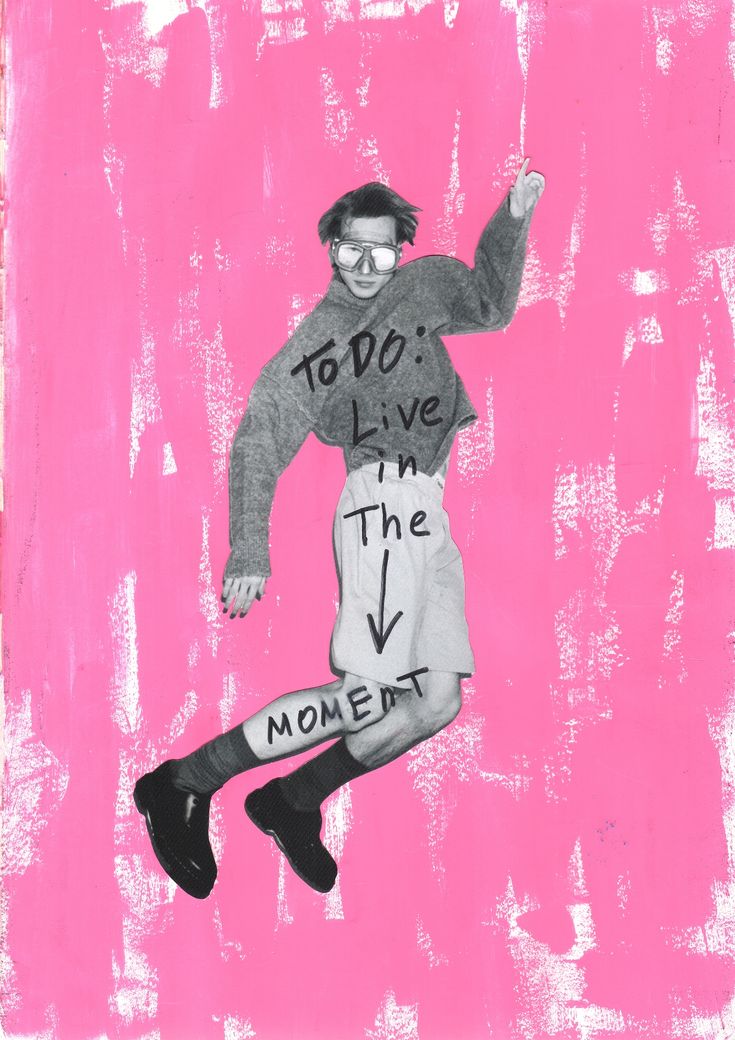 ToDO:
Live
in
The
MOMEnT